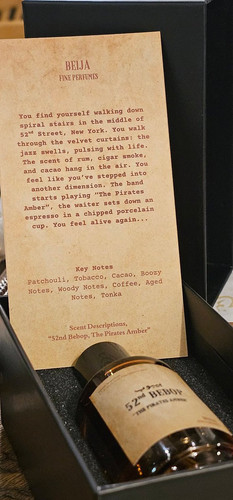 BEIJA
FINE PERFUMES
You find yourself walking down
spiral stairs in the middle of
52nd Street, New York. You walk
through the velvet curtains: the
jazz swells, pulsing with life.
The scent of rum, cigar smoke,
and cacao hang in the air. You
feel like you've stepped into
another dimension. The band
starts playing "The Pirates
Amber", the waiter sets down an
espresso in a chipped porcelain
cup. You feel alive again...
Key Notes
Patchouli, Tobacco, Cacao, Boozy
Notes, Woody Notes, Coffee, Aged
Notes, Tonka
Scent Descriptions,
"52nd Bebop, The Pirates Amber"
52nd BEBOP
"THE PIRATES AMBER"